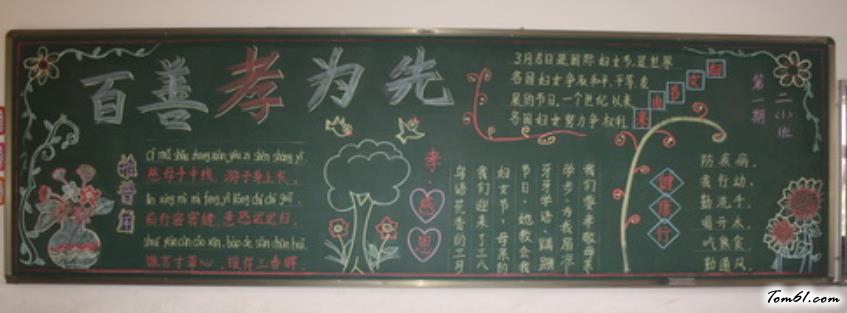 百善孝为先
3月8日是国际妇女节,是世界
各国妇女争取和平、平等、发
展的节日,一个世纪以来
各国妇女努力争权利
妇女节由来
第一期
二小班
拼音篇
cí mǔ shǒu zhōng xiàn, yóu zǐ shēn shàng yī
慈母手中线,游子身上衣,
lín xíng mì mì féng, yì kǒng chí chí guī
临行密密缝,意恐迟迟归,
shuí yán cùn cǎo xīn, bào dé sān chūn huī
谁言寸草心,报得三春晖
孝·感恩
鸟语花香的三月
我们迎来了三八
妇女节,母亲的
节日,她教会我
牙牙学语,蹒跚
学步,为我
我们要来敬母亲
健康行
防疾病,
我行动,
勤洗手,
喝开水,
吃熟食,
勤通风。
Tom61.com